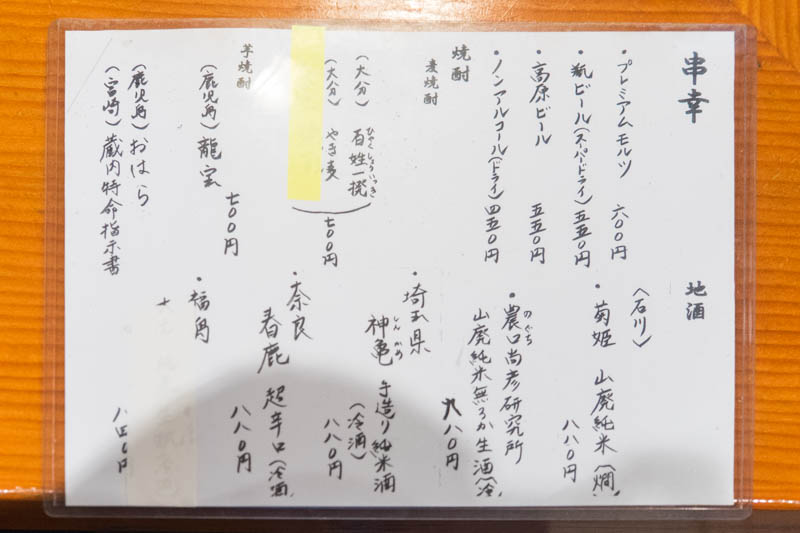 串幸
・プレミアムモルツ 六〇〇円
・瓶ビール(スーパードライ) 五五〇円
・高原ビール 五五〇円
・ノンアルコール(ドライ) 四五〇円
焼酎
麦焼酎
(大分) 百姓一揆 ひゃくしょういっき
(大分) やき麦
七〇〇円
芋焼酎
(鹿児島) 龍宝 七〇〇円
(鹿児島) おはら
(宮崎) 蔵内特命指示書
地酒
(石川)
・菊姫 山廃純米(燗)
八八〇円
・農口尚彦研究所 のぐち
山廃純米無ろか生酒(冷
八八〇円
・埼玉県
神亀 しんかめ 手造り純米酒
(冷酒)
八八〇円
・奈良
春鹿 超辛口(冷酒
八八〇円
・福島